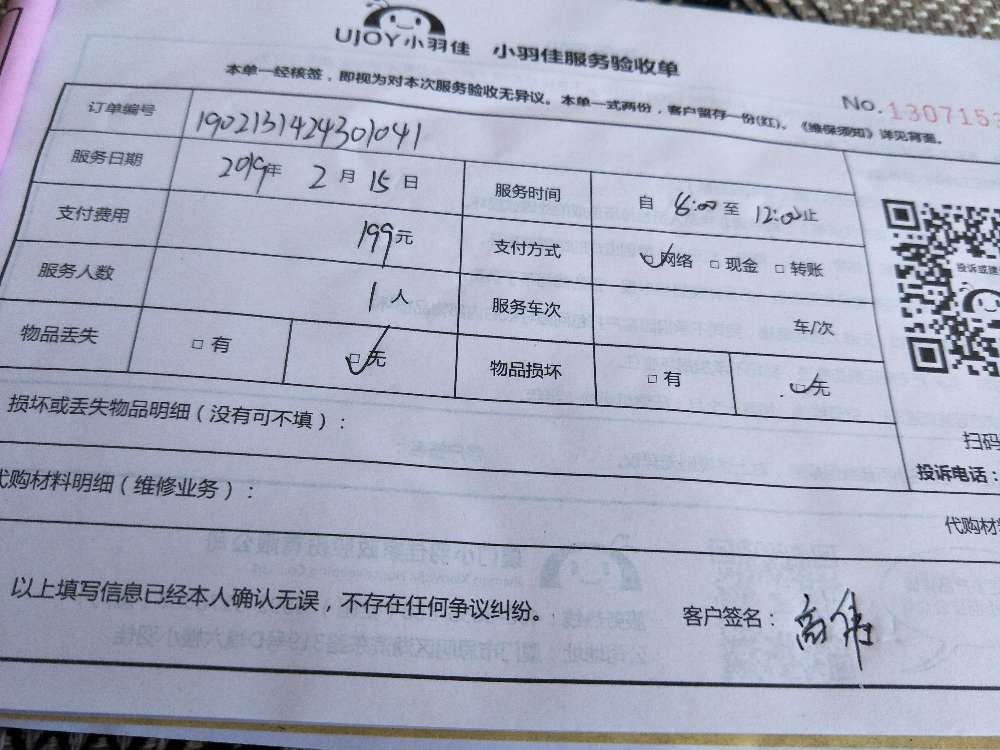 UJOY小羽佳 小羽佳服务验收单
本单一经核签，即视为对本次服务验收无异议。本单一式两份，客户留存一份(红)。《维保须知》详见背面。
No.1307153
订单编号 1902131424301041
服务日期 2019年 2月 15日 服务时间 自 8:00 至 12:00 止
支付费用 199元 支付方式 网络 □现金 □转账
服务人数 1人 服务车次 车/次
物品丢失 □有 无 物品损坏 □有 无
投诉或建
扫码
投诉电话：
损坏或丢失物品明细（没有可不填）：
代购材料明细（维修业务）：
代购材
以上填写信息已经本人确认无误，不存在任何争议纠纷。 客户签名：高伟